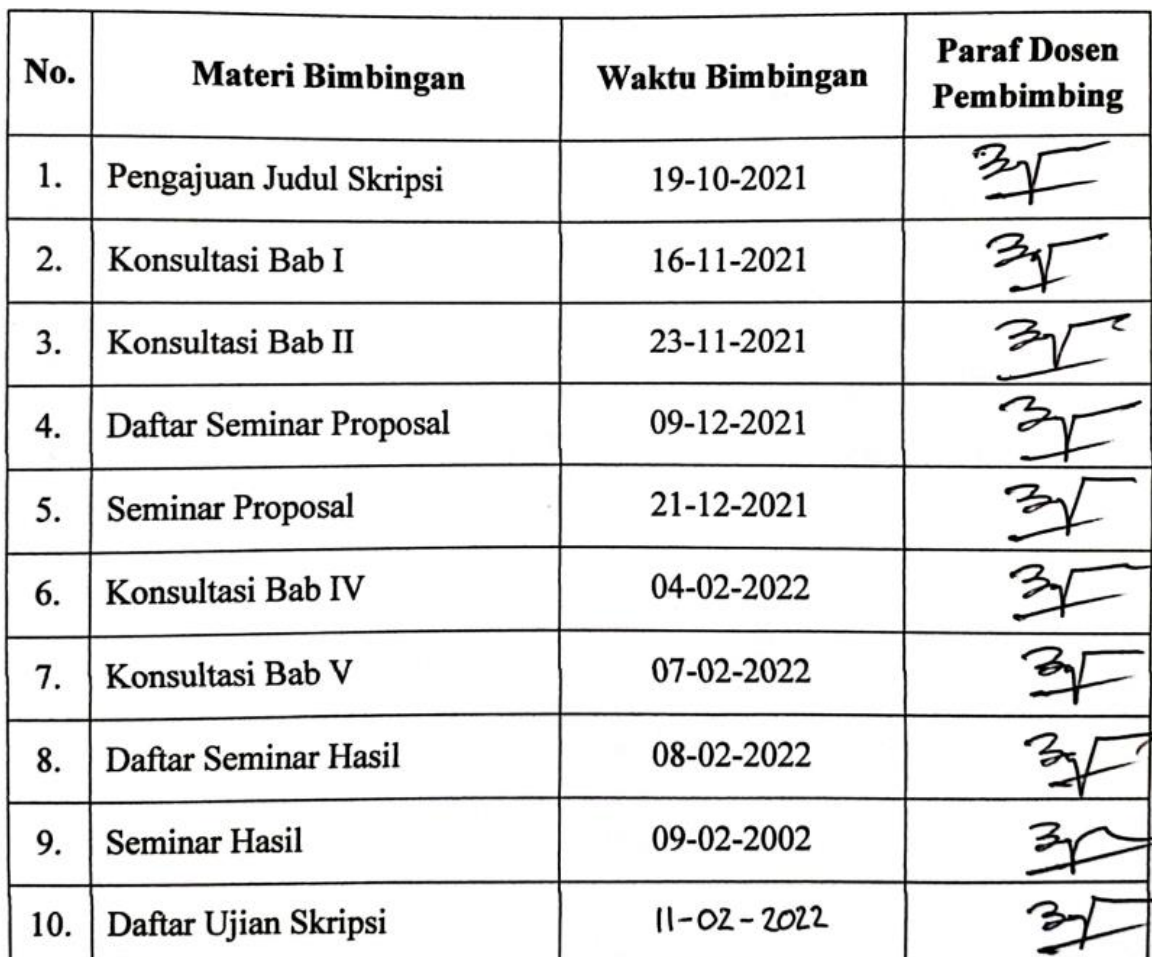 No. Materi Bimbingan Waktu Bimbingan Paraf Dosen
Pembimbing
1. Pengajuan Judul Skripsi 19-10-2021
2. Konsultasi Bab I 16-11-2021
3. Konsultasi Bab II 23-11-2021
4. Daftar Seminar Proposal 09-12-2021
5. Seminar Proposal 21-12-2021
6. Konsultasi Bab IV 04-02-2022
7. Konsultasi Bab V 07-02-2022
8. Daftar Seminar Hasil 08-02-2022
9. Seminar Hasil 09-02-2002
10. Daftar Ujian Skripsi 11-02-2022